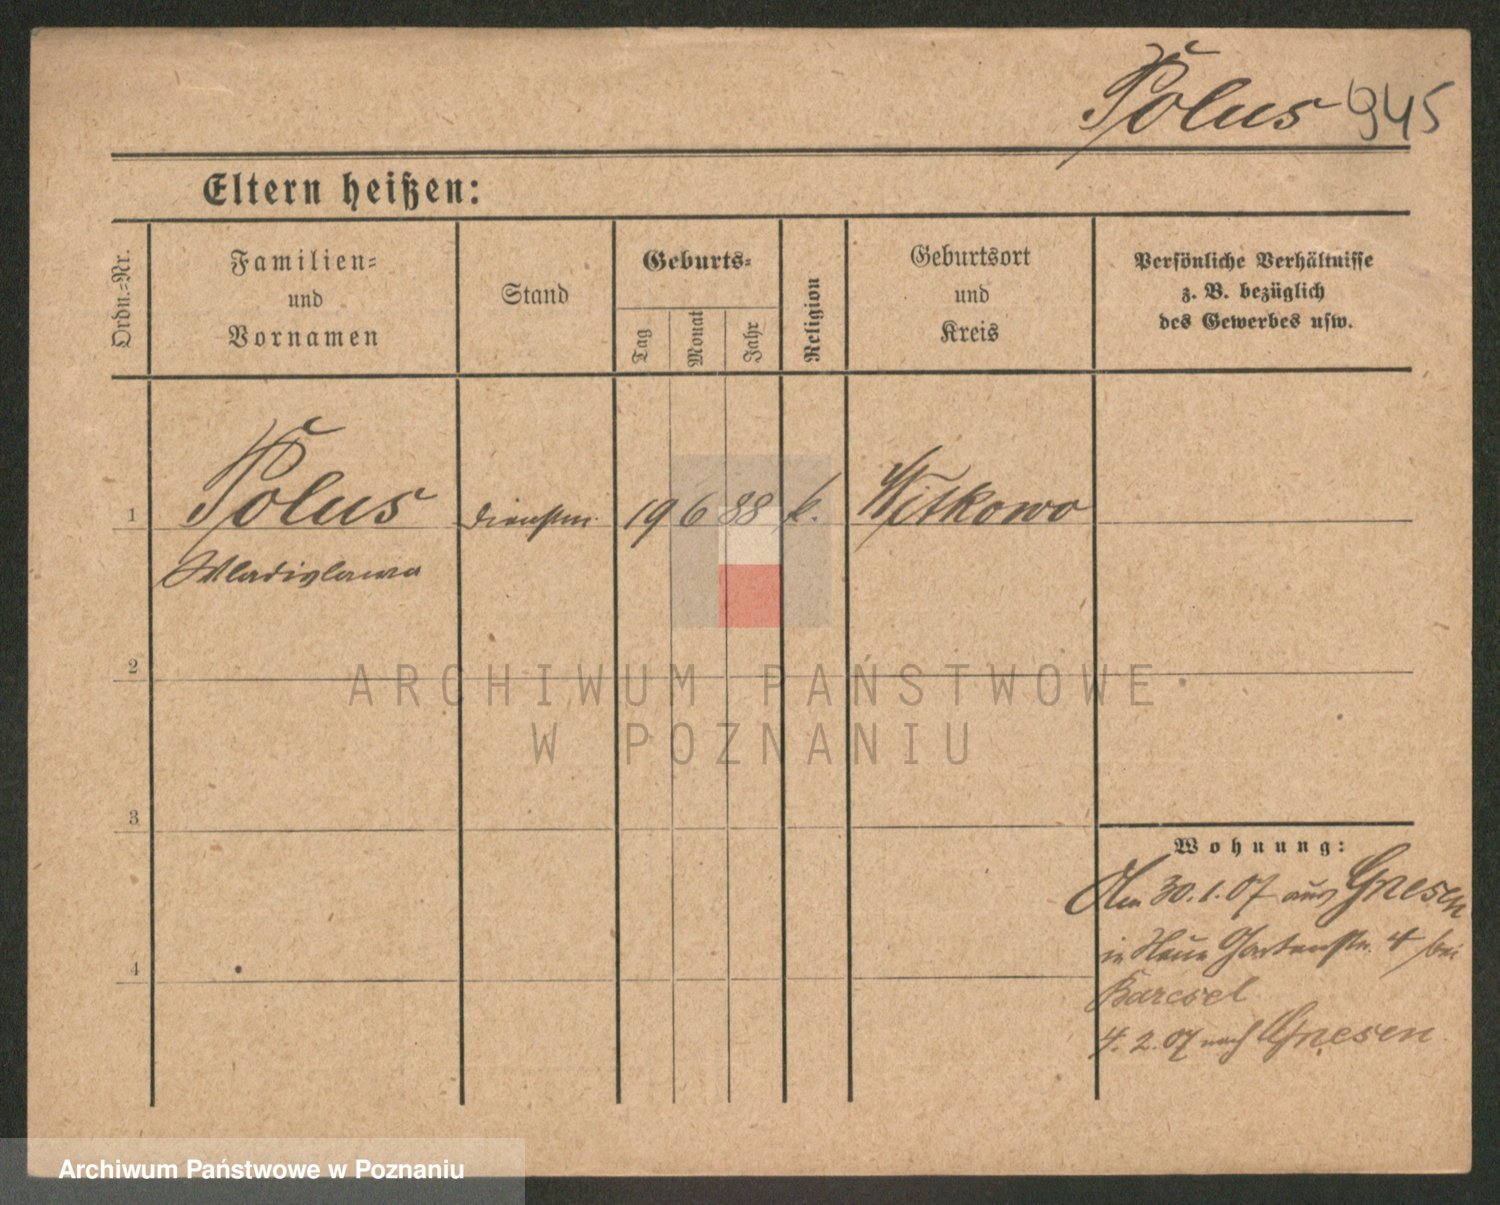 Polus 945
Eltern heißen:
Ordn.-Nr.
Familien-
und
Vornamen
Stand
Geburts-
Tag
Monat
Jahr
Religion
Geburtsort
und
Kreis
Persönliche Verhältnisse
z. B. bezüglich
des Gewerbes usw.
1 Polus Dienstm. 19 6 88 k. Witkowo
Wladislawa
2
ARCHIWUM PAŃSTWOWE
W POZNANIU
3
Wohnung:
Am 30.1.07 aus Gnesen
in Neue Gartenstr. 4 bei
4
4.2.07 nach Gnesen
Archiwum Państwowe w Poznaniu